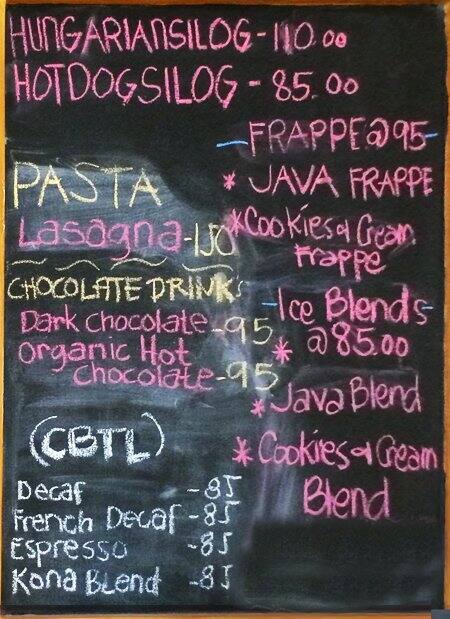 HUNGARIANSILOG - 110.00
HOTDOGSILOG - 85.00
PASTA
Lasagna - 150
CHOCOLATE DRINK's
Dark Chocolate - 95
Organic Hot
Chocolate - 95
(CBTL)
Decaf - 85
French Decaf - 85
Espresso - 85
Kona Blend - 85
- FRAPPE @ 95 -
* JAVA FRAPPE
* Cookies & Cream
Frappe
- Ice Blends -
* @ 85.00
* Java Blend
* Cookies & Cream
Blend